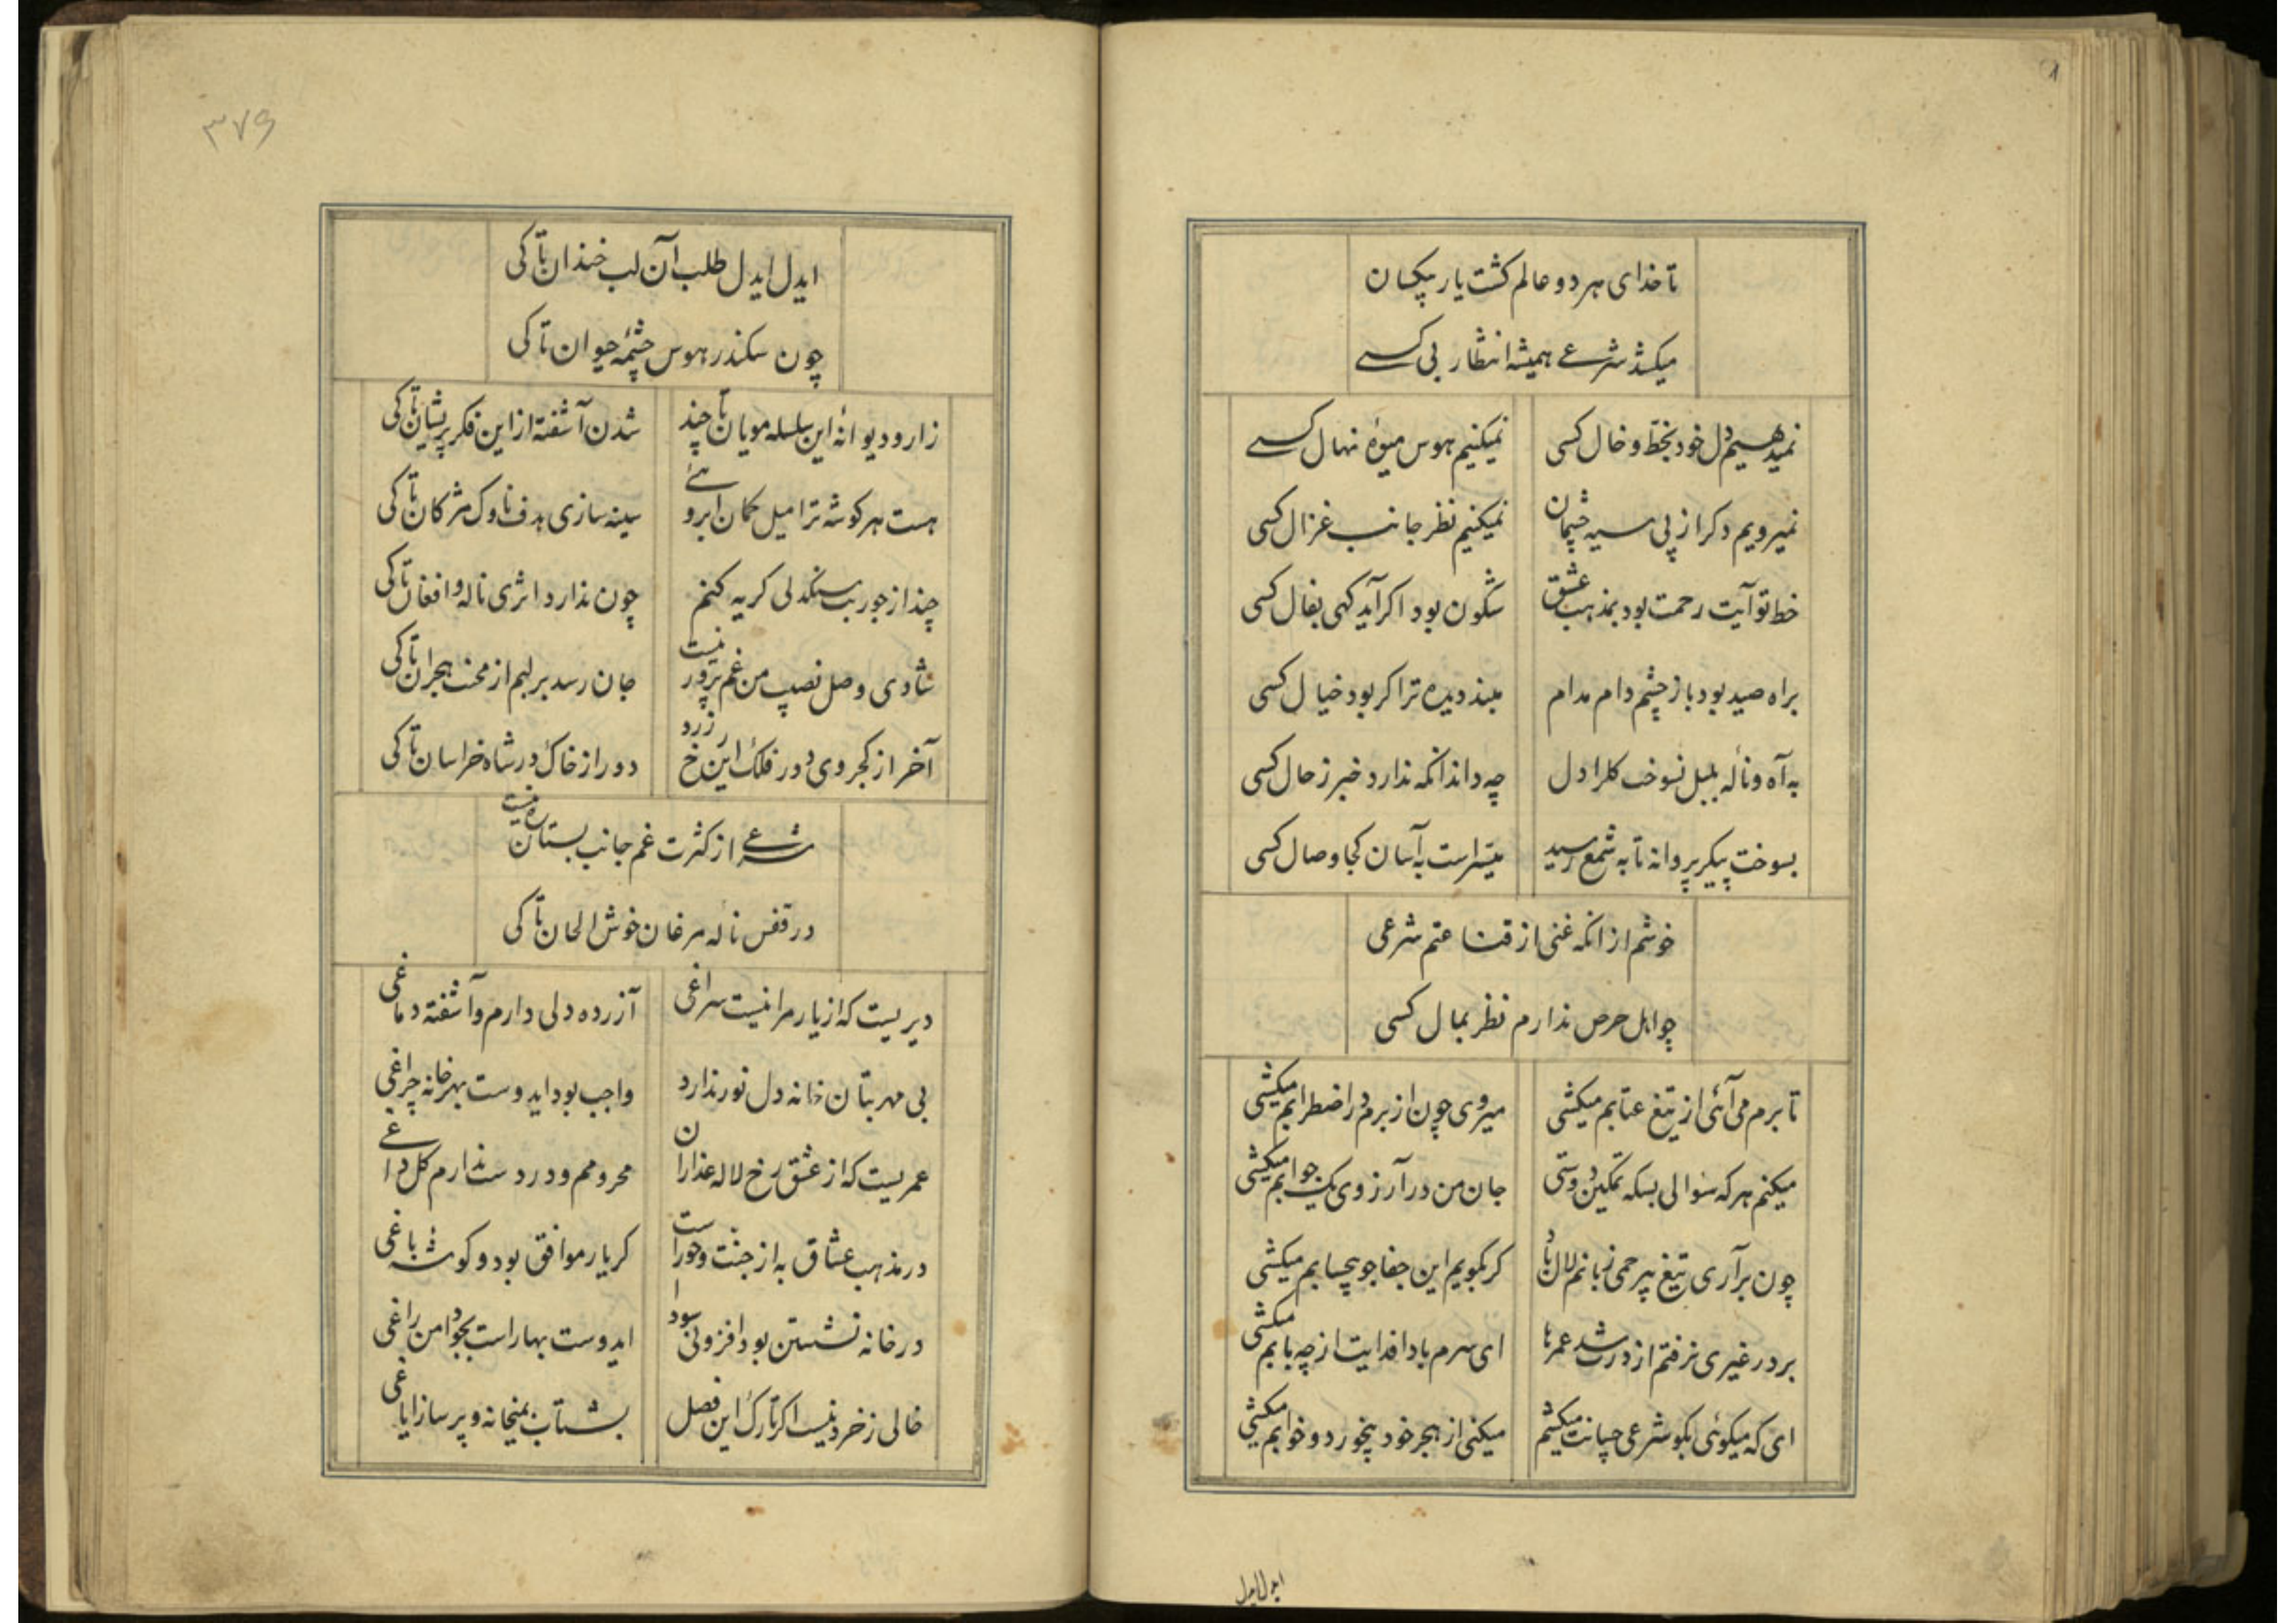 تا خدای هر دو عالم کشت یار بیکسان
میکشد شرعی همیشه انتظار بی کسی
نمیدهیم دل خود بخط و خال کسی نمیکنیم هوس میوهٔ نهال کسی
نمیرویم دکر از پی سیه چشمان نمیکنیم نظر جانب غزال کسی
خط تو آیت رحمت بود بمذهب عشق شکون بود اکر آید کهی بفال کسی
براه صید بود باز چشم دام مدام مبند دیده ترا کر بود خیال کسی
به آه و نالهٔ بلبل نسوخت کلرا دل چه داند انکه ندارد خبر ز حال کسی
بسوخت پیکر پروانه تا به شمع رسید میسر است به آسان کجا وصال کسی
خوشم از انکه غنی از قناعتم شرعی
چو اهل حرص ندارم نظر بمال کسی
تا برم می آئی از تیغ عتابم میکشی میروی چون از برم در اضطرابم میکشی
میکنم هر که سوالی بسکه تمکین دوستی جان من در آرزوی یک جوابم میکشی
چون برآری تیغ بیرحمی زبانم لال باد کر بکویم این جفاجو بیحسابم میکشی
بر در غیری نرفتم از درت شد عمرها ای سرم بادا فدایت از چه بابم میکشی
ای که میکوئی بکو شرعی چسانت میکشم میکنی از هجر خود بیخورد و خوابم میکشی
ایدل ایدل
۳۷۶
ایدل ایدل طلب آن لب خندان تا کی
چون سکندر هوس چشمهٔ حیوان تا کی
زار و دیوانهٔ این سلسله مویان تا چند شدن آشفته از این فکر پریشان تا کی
هست هر کوشه ترا میل کمان ابروئی سینه سازی هدف ناوک مژکان تا کی
چند از جور بت سنکدلی کریه کنم چون ندارد اثری ناله و افغان تا کی
شادی وصل نصیب من غم پرور نیست جان رسد بر لبم از محنت هجران تا کی
آخر از کجروی دور فلک این رخ زرد دور از خاک در شاه خراسان تا کی
شرعی از کثرت غم جانب بستان ره نیست
در قفس ناله مرغان خوش الحان تا کی
دیریست که از یار مرا نیست سراغی آزرده دلی دارم و آشفته دماغی
بی مهر بتان خانه دل نور ندارد واجب بود ایدوست بهر خانه چراغی
عمریست که از عشق رخ لاله عذاران محرومم و در دست ندارم کل داغی
در مذهب عشاق به از جنت و حور است کر یار موافق بود و کوشه باغی
در خانه نشستن بود افزونی سودا ایدوست بهار است بجو دامن راغی
خالی ز خرد نیست اکر تارک این فصل بشتاب بمیخانه و پر ساز ایاغی